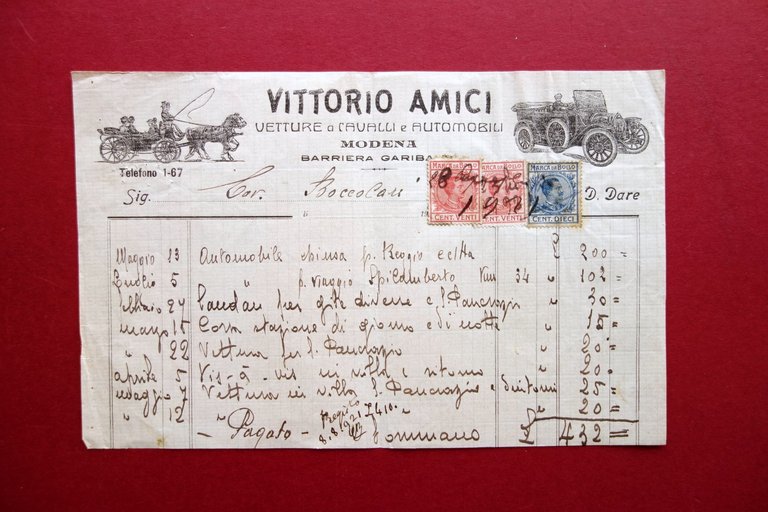 VITTORIO AMICI
VETTURE a CAVALLI e AUTOMOBILI
MODENA
BARRIERA GARIBA
Telefono 1-67
Sig. Cav. D. Dare
MARCA DA BOLLO MARCA DA BOLLO MARCA DA BOLLO
1921
CENT. VENTI CENT. VENTI CENT. DIECI
Maggio 13 Automobile chiusa p. Reggio e città £ 200 =
Luglio 5 " p. viaggio Spilamberto Km 34 " 102 =
febbraio 27 Landau per gite diverse e S. Pancrazio " 30 =
marzo 15 Corsa stazione di giorno e di notte " 15 =
" 22 Vettura per S. Pancrazio " 20 =
aprile 5 Vis-à-vis in villa e ritorno " 20 =
maggio 7 Vettura in villa S. Pancrazio e " 25 =
" 12 " " " 20 =
Pagato £ 410 =
8.8.1921
Sommano £ 432 =